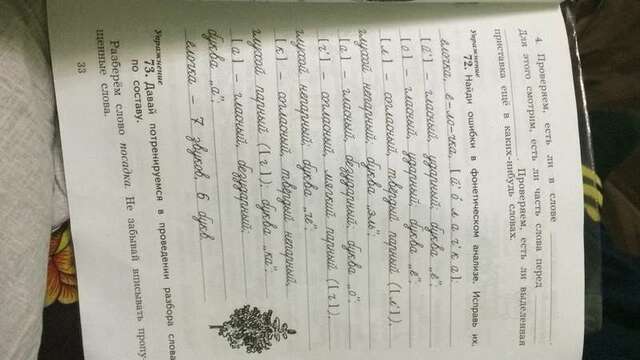 4. Проверяем, есть ли в слове
Для этого смотрим, есть ли часть слова перед
. Проверяем, есть ли выделенная
приставка ещё в каких-нибудь словах.
Упражнение
72. Найди ошибки в фонетическом анализе. Исправь их.
ёлочка, ё-ло-чка, [й' о́ л а ч' к а].
[й'] – гласный, ударный, буква „ё".
[о] – гласный, ударный, буква „ё".
[л] – согласный, твердый парный ([л']),
глухой непарный, буква „эль".
[а] – гласный, безударный, буква „о".
[ч'] – согласный, мягкий парный ([ч]),
глухой непарный, буква „че".
[к] – согласный, твердый непарный,
глухой парный ([г]), буква „ка".
[а] – гласный, безударный,
буква „а".
ёлочка – 7 звуков, 6 букв
Упражнение
73. Давай потренируемся в проведении разбора слова
по составу.
Разберём слово посадка. Не забывай вписывать пропу-
щенные слова.
33